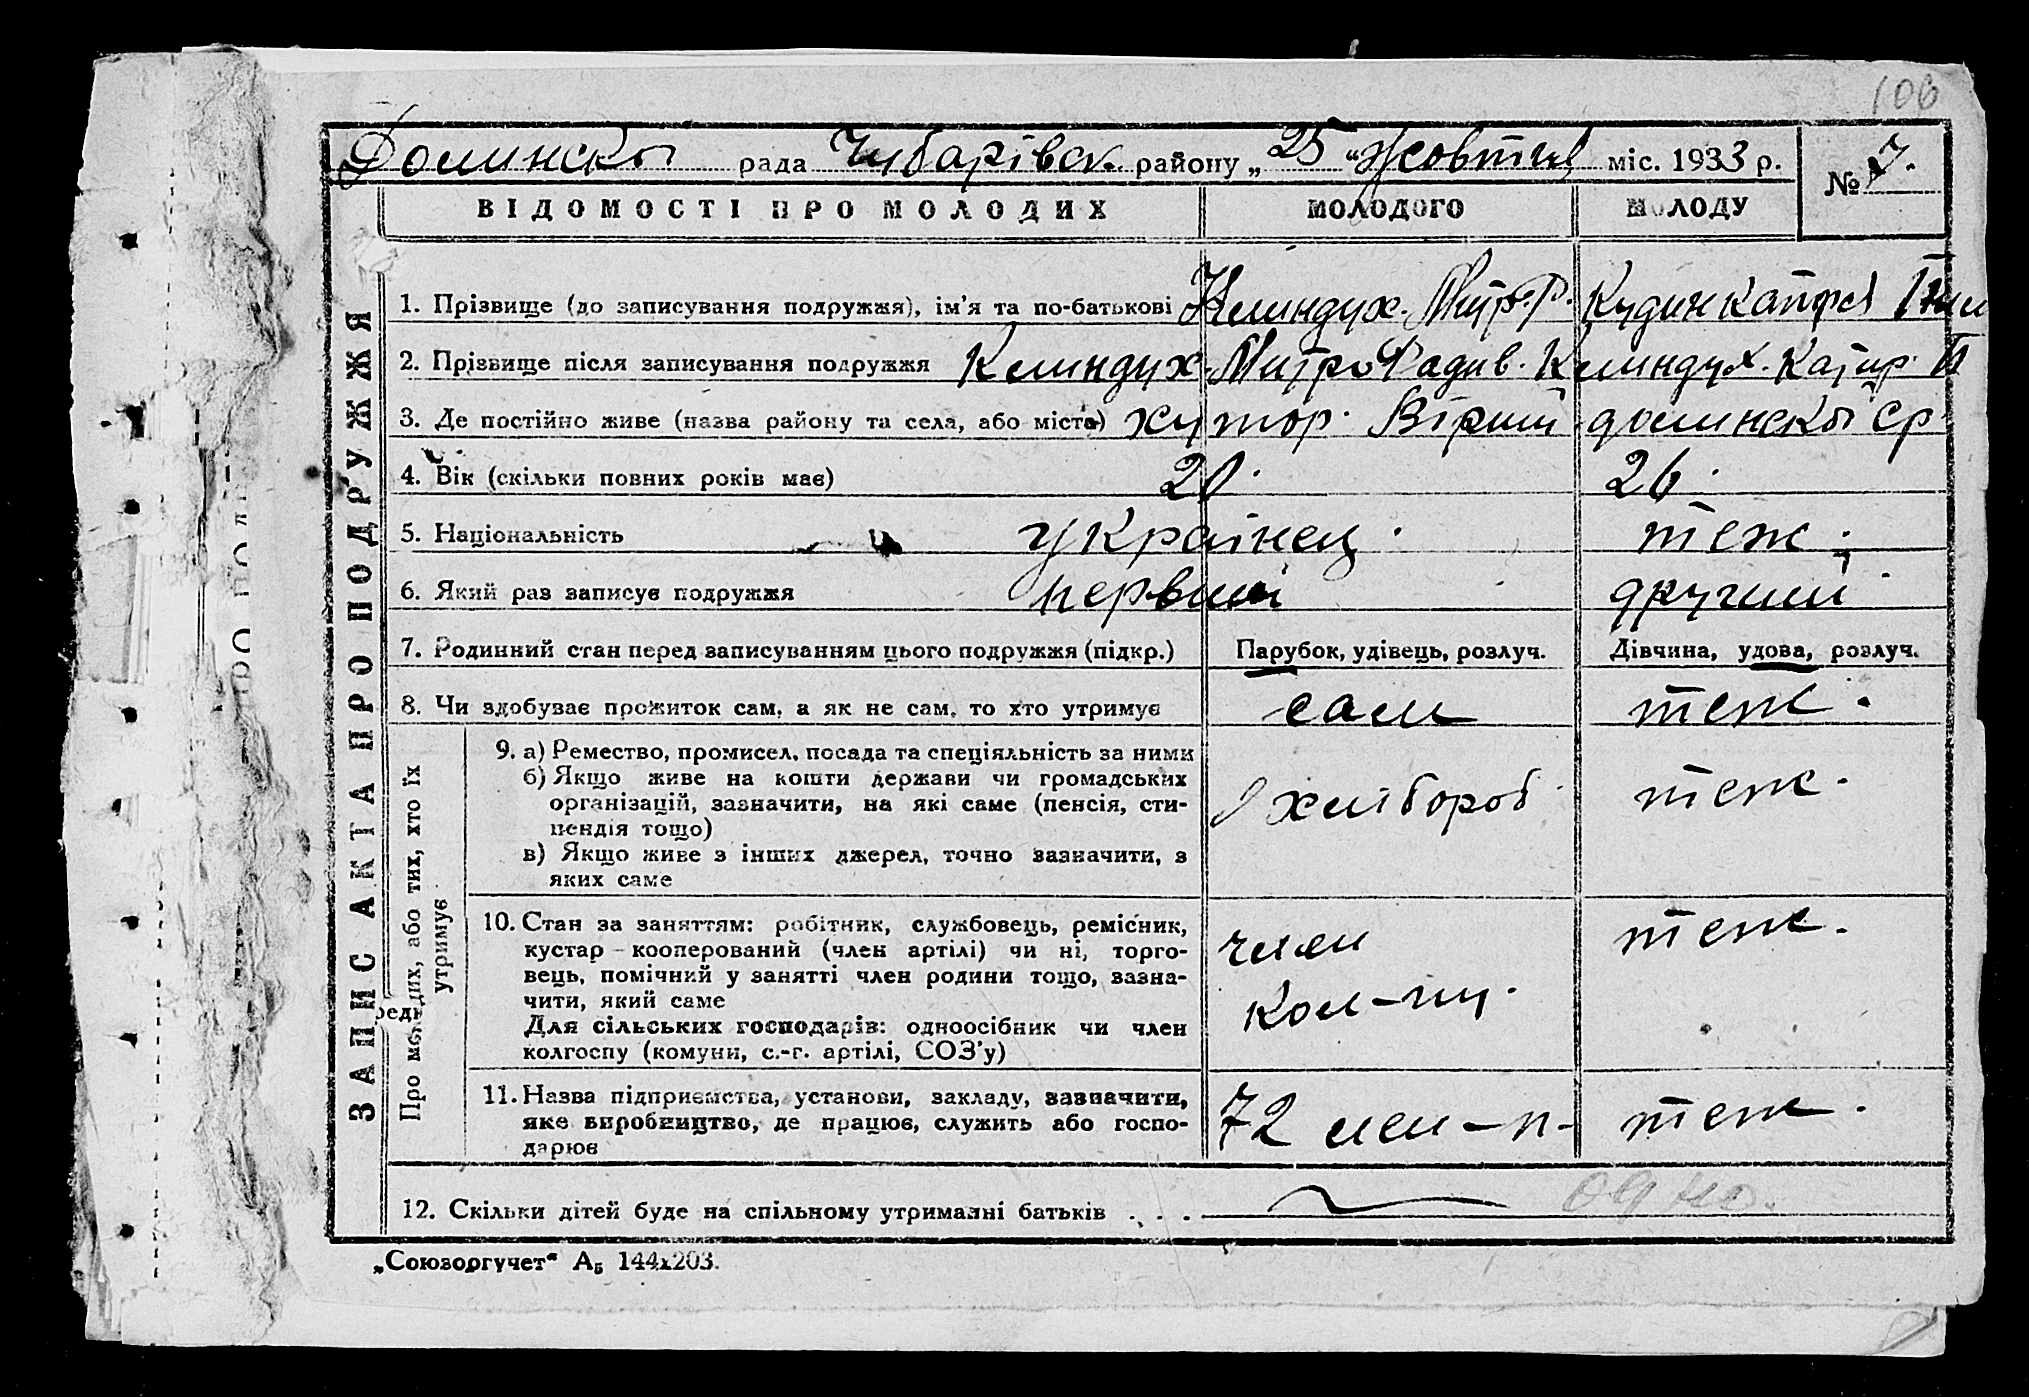 106
Долинскы рада Чубарівск. району „25“ Жовтня міс. 1933 р.
№ 7.
ВІДОМОСТІ ПРО МОЛОДИХ МОЛОДОГО МОЛОДУ
ЗАПИС АКТА ПРО ПОДРУЖЖЯ
1. Прізвище (до записування подружжя), ім’я та по-батькові Клиндух. Митр. Р. Кудин Катря
2. Прізвище після записування подружжя Клиндух Митро Радив. Клиндух. Катир.
3. Де постійно живе (назва району та села, або міста) хутор. Вірши долинскы ср.
4. Вік (скільки повних років має) 20. 26.
5. Національність украінец. теж.
6. Який раз записує подружжя первий другий
7. Родинний стан перед записуванням цього подружжя (підкр.) Парубок, удівець, розлуч. Дівчина, удова, розлуч.
8. Чи здобуває прожиток сам, а як не сам, то хто утримує сам теж.
Про молодих, або тих, хто їх
утримує
9. а) Ремество, промисел, посада та спеціяльність за ними
б) Якщо живе на кошти держави чи громадських
організацій, зазначити, на які саме (пенсія, сти-
пендія тощо)
в) Якщо живе з інших джерел, точно зазначити, з
яких саме
хлібороб теж.
10. Стан за заняттям: робітник, службовець, ремісник,
кустар–кооперований (член артілі) чи ні, торго-
вець, помічний у занятті член родини тощо, зазна-
чити, який саме
Для сільських господарів: одноосібник чи член
колгоспу (комуни, с.-г. артілі, СОЗ’у)
член теж.
кол-пу.
11. Назва підприємства, установи, закладу, зазначити,
яке виробництво, де працює, служить або госпо-
дарює
72 теж.
12. Скільки дітей буде на спільному утриманні батьків . . . одно.
„Союзоргучет“ А₅ 144х203.